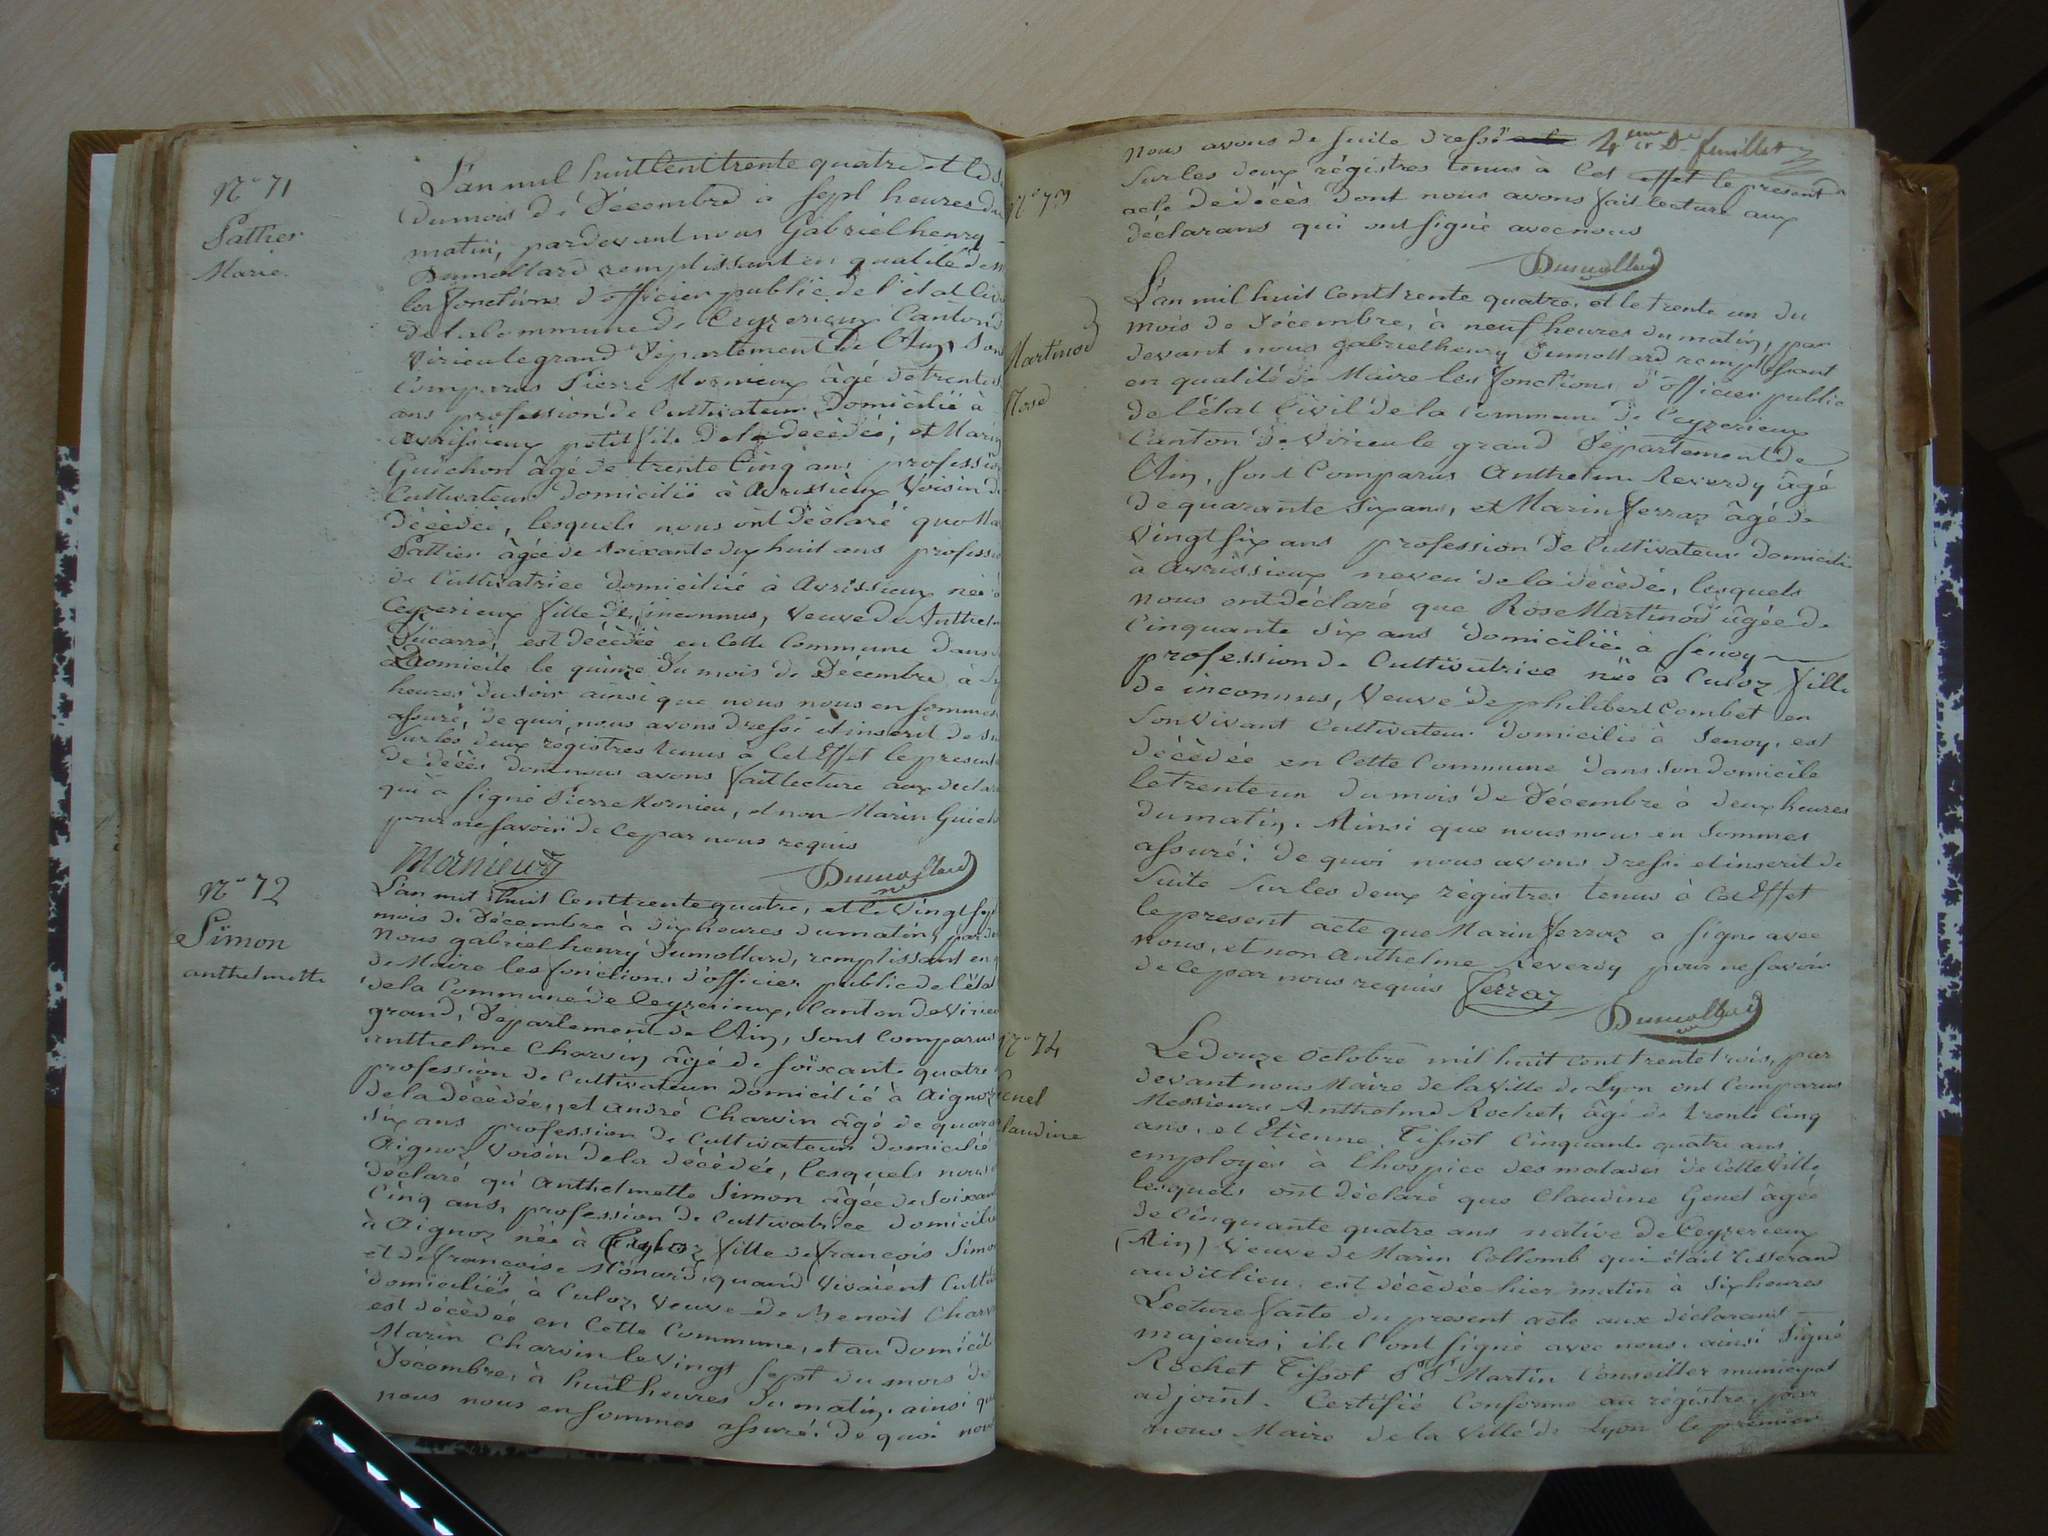 N° 71
Pattier
Marie.
L'an mil huit cent trente quatre et le
du mois de Décembre à sept heures du
matin, pardevant nous Gabriel henry
Dumollard remplissant en qualité de
les fonctions d'officier public de l'état
de la Commune de Ceyzerieux Canton
Virieu le grand Département de l'Ain, Sont
Comparus Pierre Mornieux âgé de trente
ans profession de Cultivateur Domicilié à
avrissieux petit fils de la décédée; et Marin
Guichon âgé de trente Cinq ans profession
Cultivateur domicilié à Avrissieux Voisin de
décédée, lesquels nous ont Déclaré que
Pattier âgée de Soixante dix huit ans profession
de Cultivatrice domiciliée à Avrissieux née à
Ceyzerieux fille de inconnus, Veuve de
Ducarre, est décédée en Cette Commune Dans
Domicile le quinze Du mois de Décembre à
heures du soir ainsi que nous nous en sommes
assuré, de quoi nous avons dressé et inscrit de
Sur les deux régistres tenus à Cet Effet le present
de décès dont nous avons fait lecture aux
qui a signé Pierre Mornieu, et non Marin
pour ne savoir de ce par nous requis
Mornieux Dumollard
N° 72
Simon
anthelmette
L'an mil huit Cent trente quatre, et le Vingt sept
mois de Décembre à dix heures du matin, par
Nous gabriel henry Dumollard, remplissant en
de Maire les fonctions d'officier public de l'état
de la Commune de Ceyzerieux, Canton de
grand, Département de l'Ain, Sont Comparus
anthelme Charvin âgé de soixante quatre
profession de Cultivateur domicilié à Aignoz
de la décédée, et andré Charvin âgé de
Six ans profession de Cultivateur domicilié
Aignoz Voisin de la décédée, lesquels nous
déclaré qu'Anthelmette Simon âgée de
Cinq ans, profession de Cultivatrice
à Aignoz née à fille de françois Simon
et de françoise Monard quand vivaient
domiciliés à Culoz, Veuve de Benoit
est décédée en Cette Commune, et au
Marin Charvin le vingt sept du mois de
Décembre, à huit heures du matin, ainsi que
nous nous en sommes assuré. De quoi nous
4eme et De. feuillet
Nous avons de suite dressé
Sur les deux régistres tenus à Cet effet le present
acte de décès dont nous avons fait lecture aux
déclarans qui ont signé avec nous
Dumollard
N° 73
Martinod
Rose
L'an mil huit Cent trente quatre, et le trente un du
mois de Décembre, à neuf heures du matin, par
devant nous gabriel henry Dumollard remplissant
en qualité de Maire les fonctions d'officier public
de l'état Civil de la Commune de Ceyzerieux
Canton de Virieu le grand Département de
l'Ain, Sont Comparus Anthelme Reverdy âgé
de quarante Six ans, et Marin ferraz âgé de
Vingt six ans profession de Cultivateur domicilié
à Avrissieux neveu de la décédée, lesquels
nous ont déclaré que Rose Martinod âgée de
Cinquante Six ans domiciliée à Senoy
profession de Cultivatrice née à Culoz fille
de inconnus, Veuve de philibert Combet en
Son vivant Cultivateur domicilié à Senoy, est
décédée en Cette Commune dans Son domicile
le trente un du mois de Décembre à deux heures
du matin. Ainsi que nous nous en Sommes
assuré; de quoi nous avons dressé et inscrit de
Suite Sur les deux régistres tenus à Cet Effet
le present acte que Marin ferraz a signé avec
nous, et non Anthelme Reverdy pour ne savoir
de ce par nous requis ferraz
Dumollard
N° 74
Genel
Claudine
Le douze octobre mil huit cent trente trois, par
devant nous Maire de la Ville de Lyon ont Comparus
Messieurs Anthelme Rochet, âgé de trente Cinq
ans, et Etienne Tissot Cinquante quatre ans
employés à l'hospice des malades de Cette Ville
lesquels ont déclaré que Claudine Genel âgée
de Cinquante quatre ans native de Ceyzerieux
(Ain) Veuve de Marin Collomb qui était tisserand
audit lieu est décédée hier matin à Six heures
Lecture faite du present acte aux déclarans
majeurs; ils l'ont signé avec nous, ainsi Signé
Rochet Tissot St Martin Conseiller municipal
adjoint. Certifié Conforme au régistre par
nous Maire de la Ville de Lyon le premier